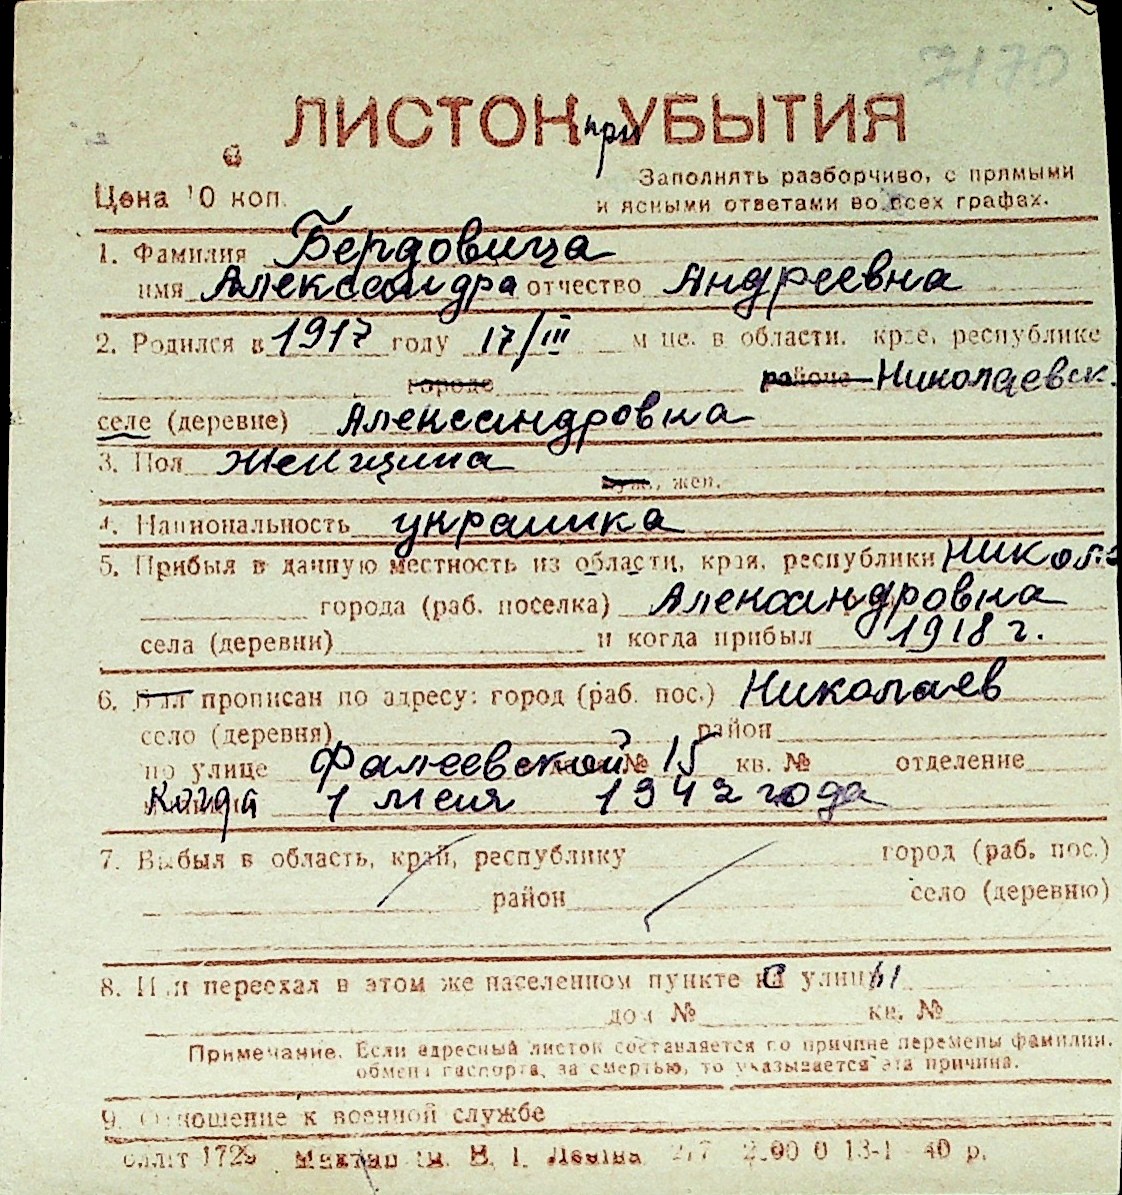 7170
ЛИСТОК при УБЫТИЯ
Цена 10 коп.
Заполнять разборчиво, с прямыми
и ясными ответами во всех графах.
1. Фамилия Бердовица
имя Александра отчество Андреевна
2. Родился в 1917 году 17/III м-це. в области, крае, республике
городе районе Николаевск.
селе (деревне) Александровка
3. Пол женщина
муж., жен.
4. Национальность украинка
5. Прибыл в данную местность из области, края, республики Никол.
города (раб. поселка) Александровка
села (деревни) и когда прибыл 1918 г.
6. Был прописан по адресу: город (раб. пос.) Николаев
село (деревня) район
по улице Фалеевской № 15 кв. № отделение
Когда 1 мая 1942 года
7. Выбыл в область, край, республику город (раб. пос.)
район село (деревню)
8. Или переехал в этом же населенном пункте с улицы
дом № кв. №
Примечание. Если адресный листок составляется по причине перемены фамилии,
обмена паспорта, за смертью, то указывается эта причина.
9. Отношение к военной службе
1729 им. В. І. Леніна 13-1 40 р.